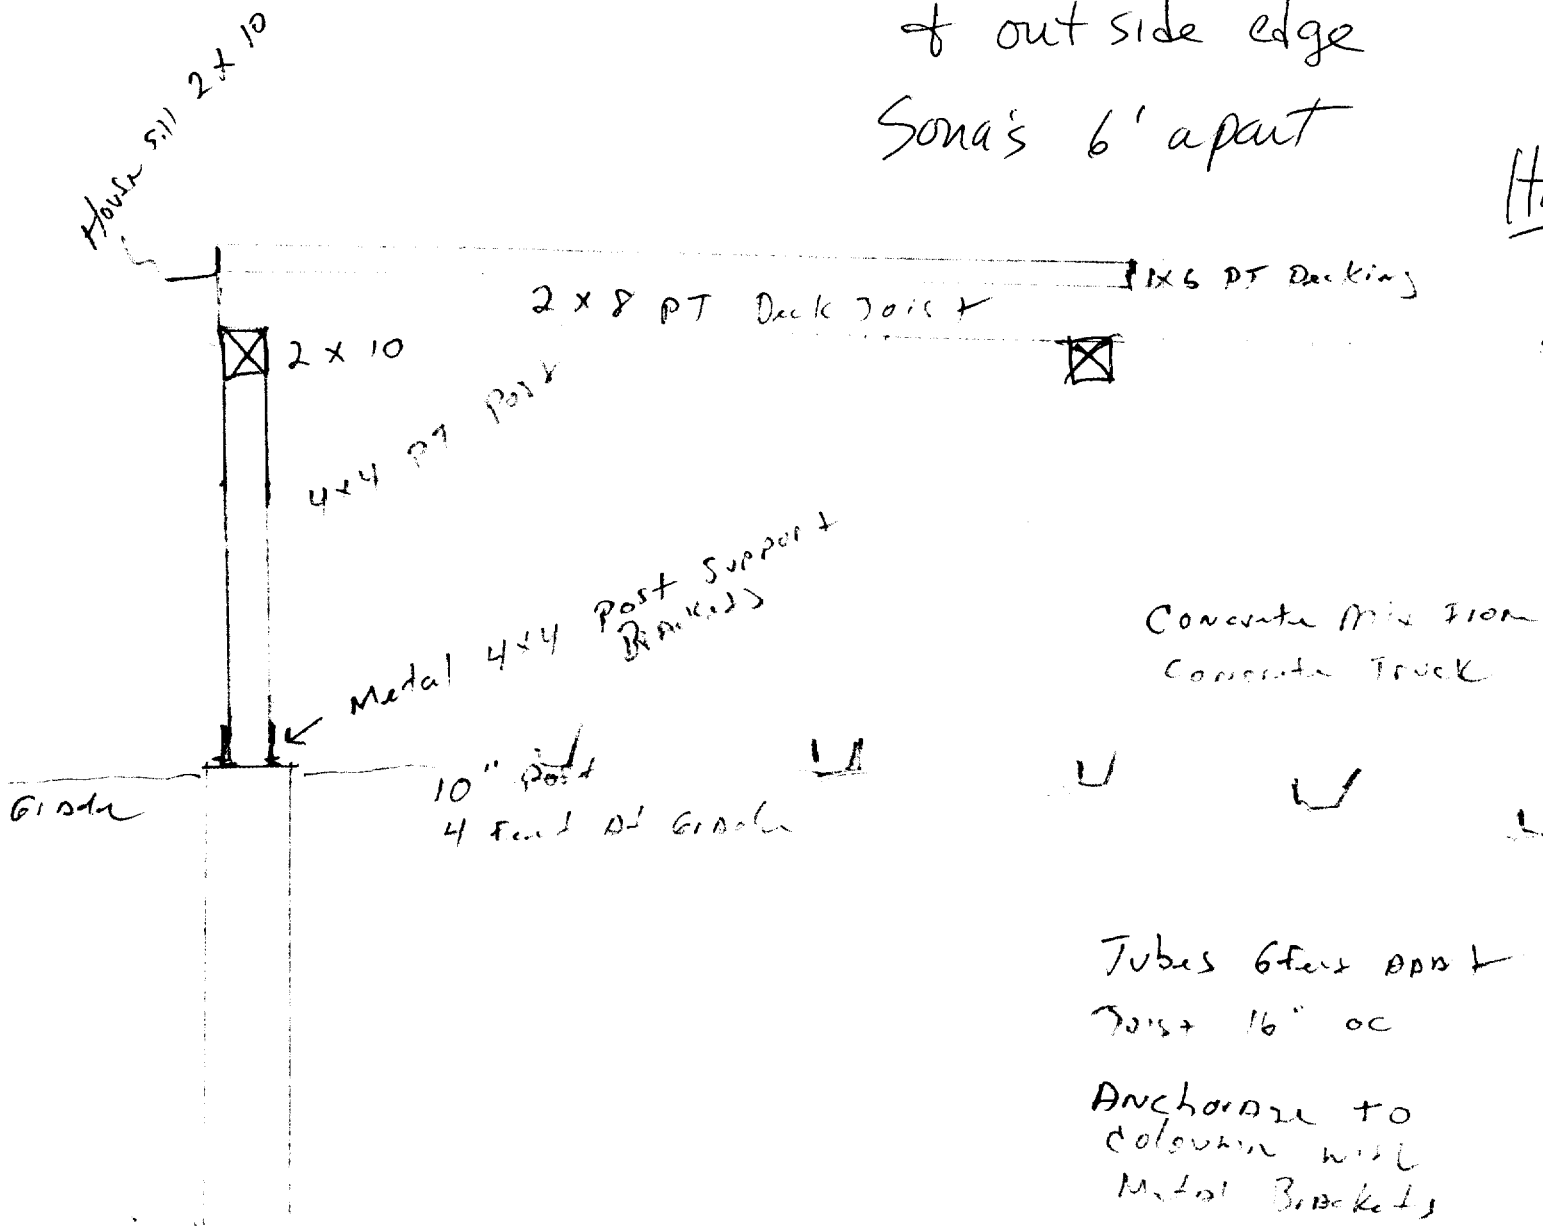 & out side edge
Sona's 6' apart
House sill 2 x 10
1x6 PT Decking
2 x 8 PT Deck Joist
2 x 10
4x4 PT Post
Metal 4x4 Post Support
Brackets
Concrete Mix From
Concrete Truck
Grade
10" Post
4 Feet At Grade
Tubes 6 feet apart
Joist 16" oc
Anchorage to
Coloumn with
Metal Brackets